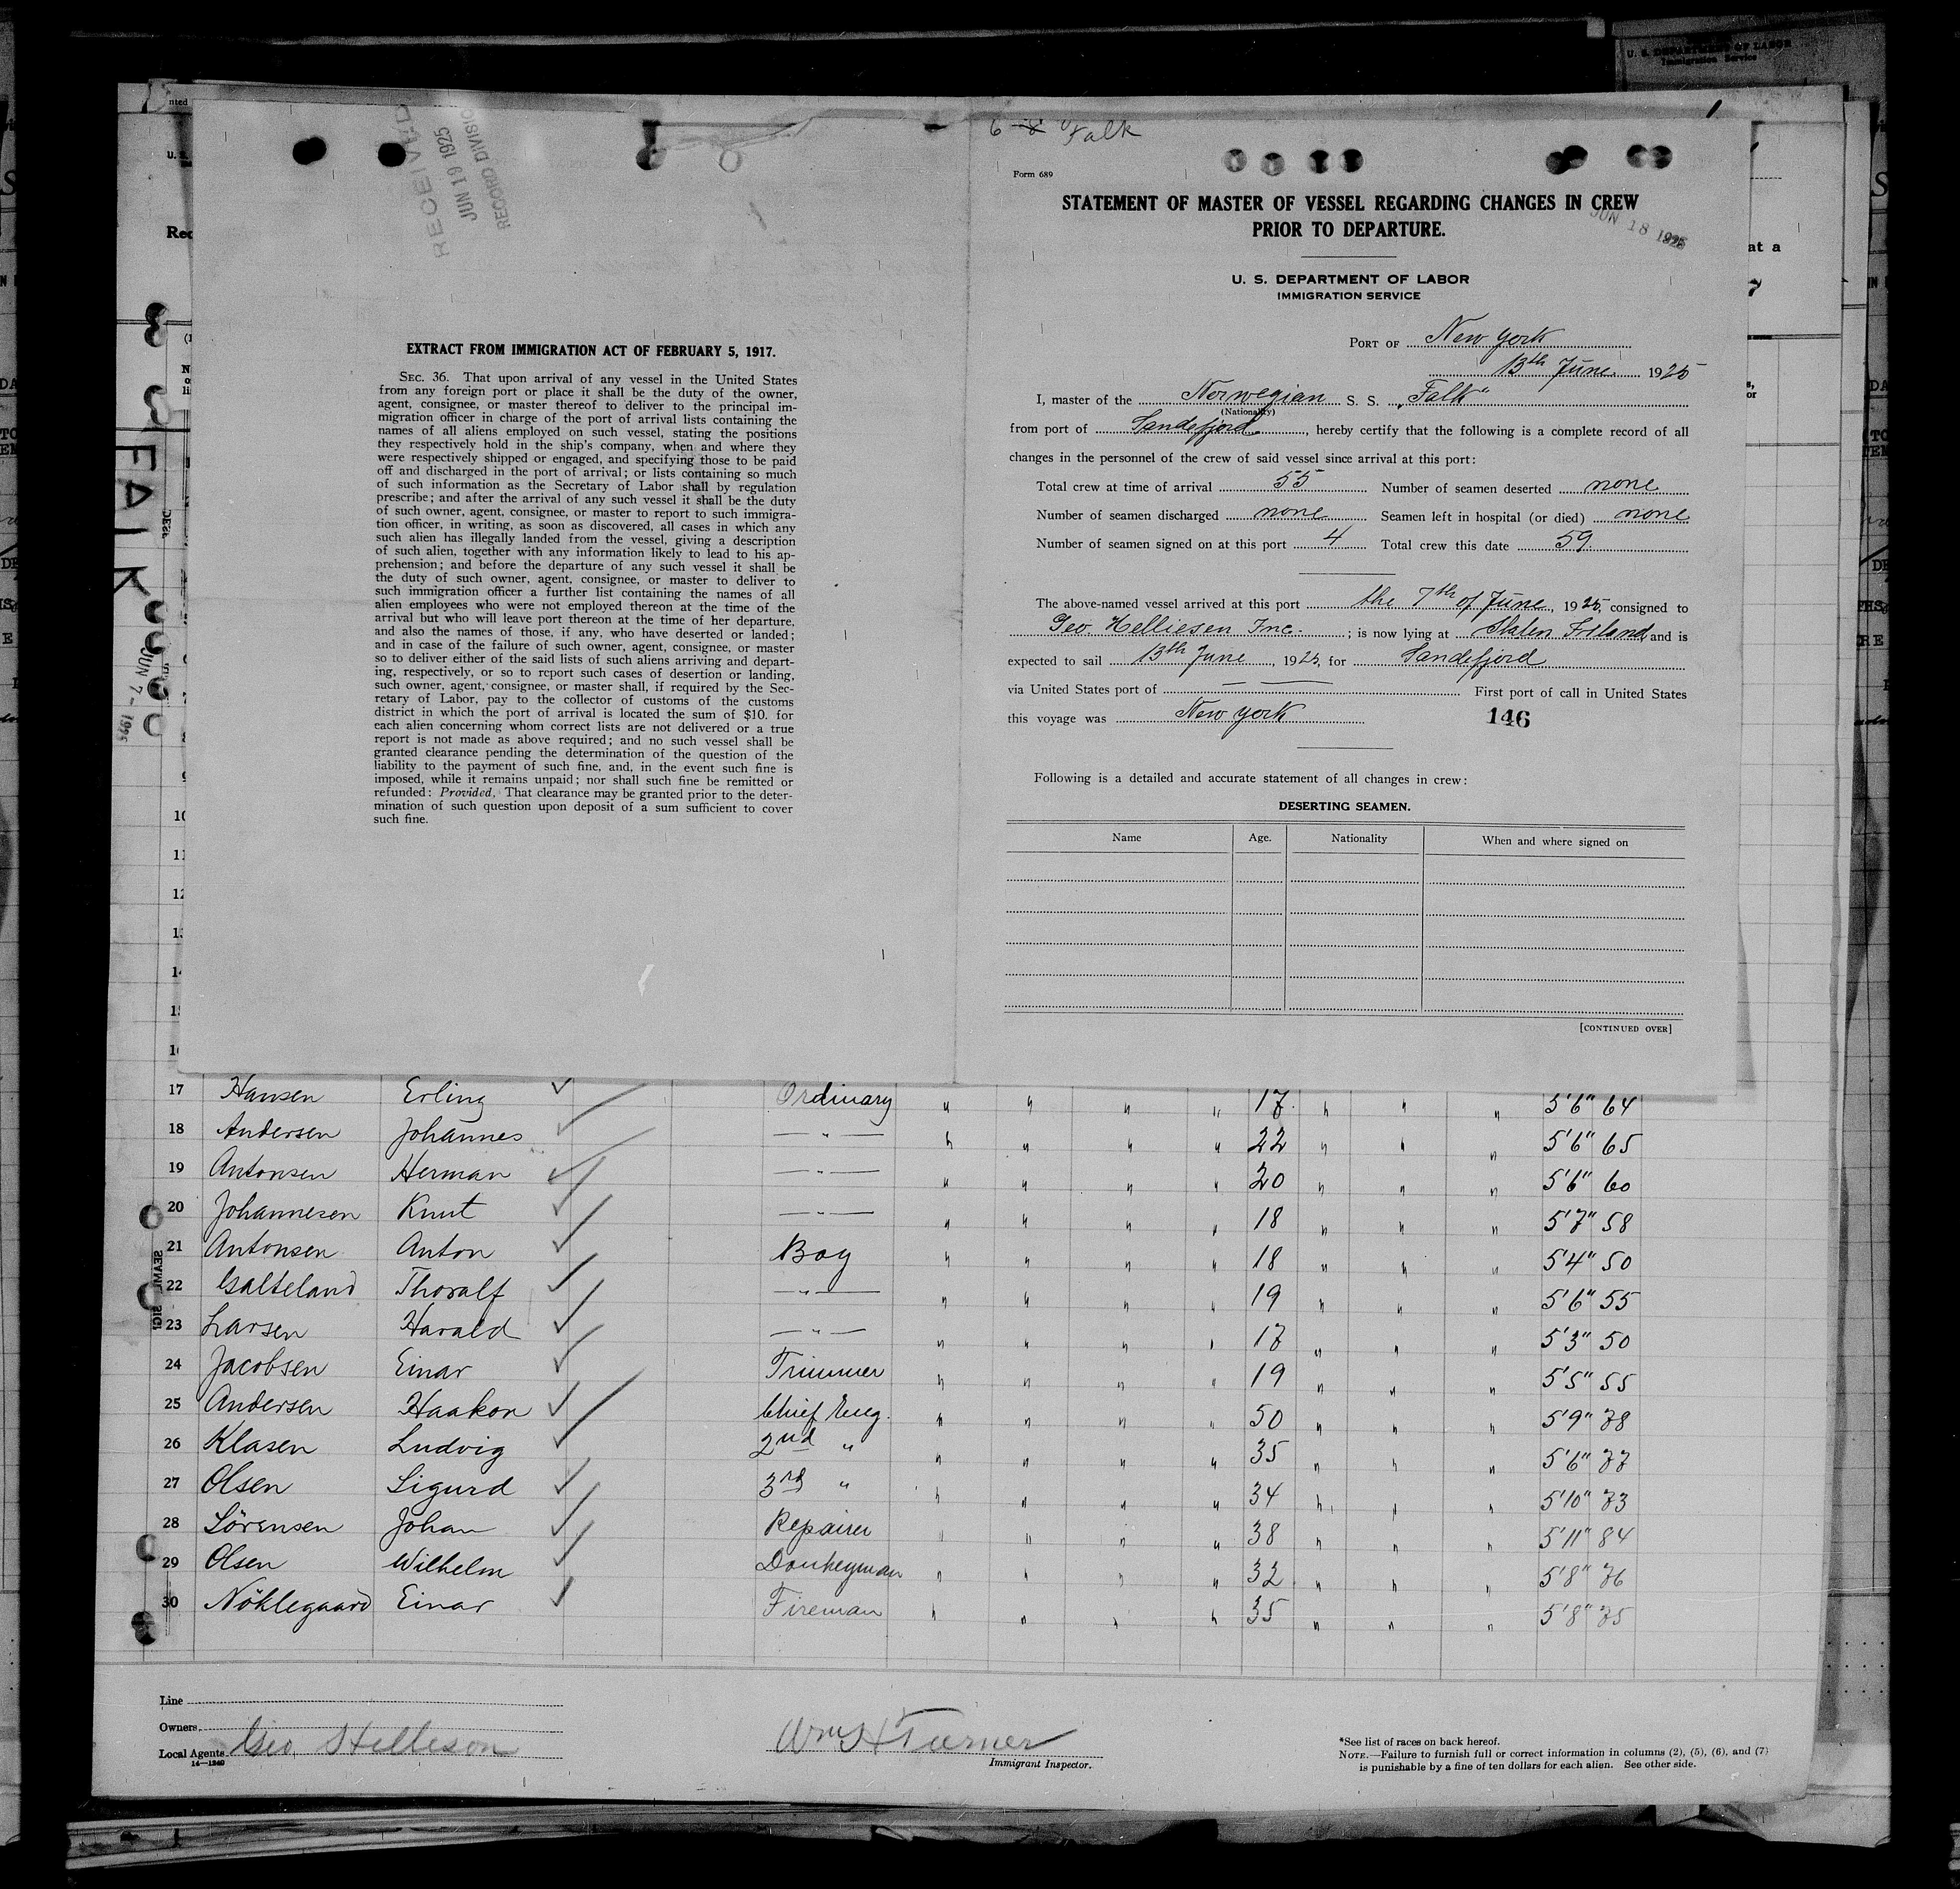 U. S. DEPARTMENT OF LABOR
Immigration Service
RECEIVED
JUN 19 1925
RECORD DIVISION
EXTRACT FROM IMMIGRATION ACT OF FEBRUARY 5, 1917.
SEC. 36. That upon arrival of any vessel in the United States
from any foreign port or place it shall be the duty of the owner,
agent, consignee, or master thereof to deliver to the principal im-
migration officer in charge of the port of arrival lists containing the
names of all aliens employed on such vessel, stating the positions
they respectively hold in the ship's company, when and where they
were respectively shipped or engaged, and specifying those to be paid
off and discharged in the port of arrival; or lists containing so much
of such information as the Secretary of Labor shall by regulation
prescribe; and after the arrival of any such vessel it shall be the duty
of such owner, agent, consignee, or master to report to such immigra-
tion officer, in writing, as soon as discovered, all cases in which any
such alien has illegally landed from the vessel, giving a description
of such alien, together with any information likely to lead to his ap-
prehension; and before the departure of any such vessel it shall be
the duty of such owner, agent, consignee, or master to deliver to
such immigration officer a further list containing the names of all
alien employees who were not employed thereon at the time of the
arrival but who will leave port thereon at the time of her departure,
and also the names of those, if any, who have deserted or landed;
and in case of the failure of such owner, agent, consignee, or master
so to deliver either of the said lists of such aliens arriving and depart-
ing, respectively, or so to report such cases of desertion or landing,
such owner, agent, consignee, or master shall, if required by the Sec-
retary of Labor, pay to the collector of customs of the customs
district in which the port of arrival is located the sum of $10. for
each alien concerning whom correct lists are not delivered or a true
report is not made as above required; and no such vessel shall be
granted clearance pending the determination of the question of the
liability to the payment of such fine, and, in the event such fine is
imposed, while it remains unpaid; nor shall such fine be remitted or
refunded: Provided, That clearance may be granted prior to the deter-
mination of such question upon deposit of a sum sufficient to cover
such fine.
FALK
JUN 7 - 1925
Falk
Form 689
STATEMENT OF MASTER OF VESSEL REGARDING CHANGES IN CREW
PRIOR TO DEPARTURE.
JUN 18 1925
U. S. DEPARTMENT OF LABOR
IMMIGRATION SERVICE
PORT OF New York
13th June 1925
I, master of the Norwegian S. S. „Falk"
(Nationality)
from port of Sandefjord, hereby certify that the following is a complete record of all
changes in the personnel of the crew of said vessel since arrival at this port:
Total crew at time of arrival 55 Number of seamen deserted none
Number of seamen discharged none Seamen left in hospital (or died) none
Number of seamen signed on at this port 4 Total crew this date 59
The above-named vessel arrived at this port the 7th of June, 1925, consigned to
Geo. Helliesen Inc.; is now lying at Staten Island and is
expected to sail 13th June, 1925, for Sandefjord
via United States port of — — First port of call in United States
this voyage was New York
146
Following is a detailed and accurate statement of all changes in crew:
DESERTING SEAMEN.
Name Age. Nationality When and where signed on
[CONTINUED OVER]
17 Hansen Erling Ordinary " " " " 17 " " " 5'6" 64
18 Andersen Johannes —"— " " " " 22 " " " 5'6" 65
19 Antonsen Herman —"— " " " " 20 " " " 5'6" 60
20 Johannesen Knut —"— " " " " 18 " " " 5'7" 58
21 Antonsen Anton Boy " " " " 18 " " " 5'4" 50
22 Galteland Thoralf —"— " " " " 19 " " " 5'6" 55
23 Larsen Harald —"— " " " " 17 " " " 5'3" 50
24 Jacobsen Einar Trimmer " " " " 19 " " " 5'5" 55
25 Andersen Haakon Chief Eng. " " " " 50 " " " 5'9" 78
26 Klasen Ludvig 2nd " " " " " 35 " " " 5'6" 77
27 Olsen Sigurd 3rd " " " " " 34 " " " 5'10" 73
28 Sörensen Johan Repairer " " " " 38 " " " 5'11" 84
29 Olsen Wilhelm Donkeyman " " " " 32 " " " 5'8" 76
30 Nöklegaard Einar Fireman " " " " 35 " " " 5'8" 75
Line
Owners
Local Agents Geo Helleson
14—1240
Wm H Turner
Immigrant Inspector.
*See list of races on back hereof.
NOTE.—Failure to furnish full or correct information in columns (2), (5), (6), and (7)
is punishable by a fine of ten dollars for each alien. See other side.